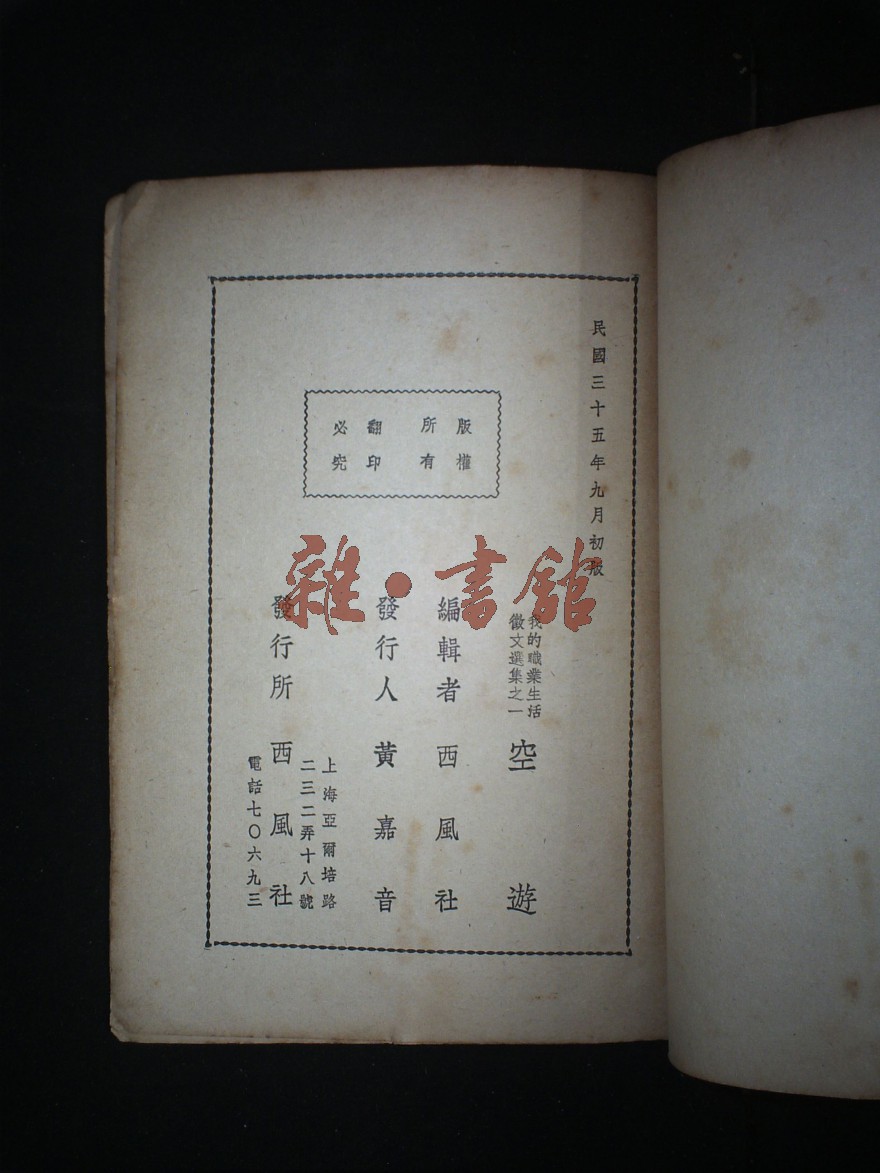 民國三十五年九月初版
版權
所有
翻印
必究
我的職業生活
徵文選集之一
空遊
編輯者 西風社
發行人 黃嘉音
發行所 西風社
上海亞爾培路
二三二弄十八號
電話七〇六九三
雜·書館